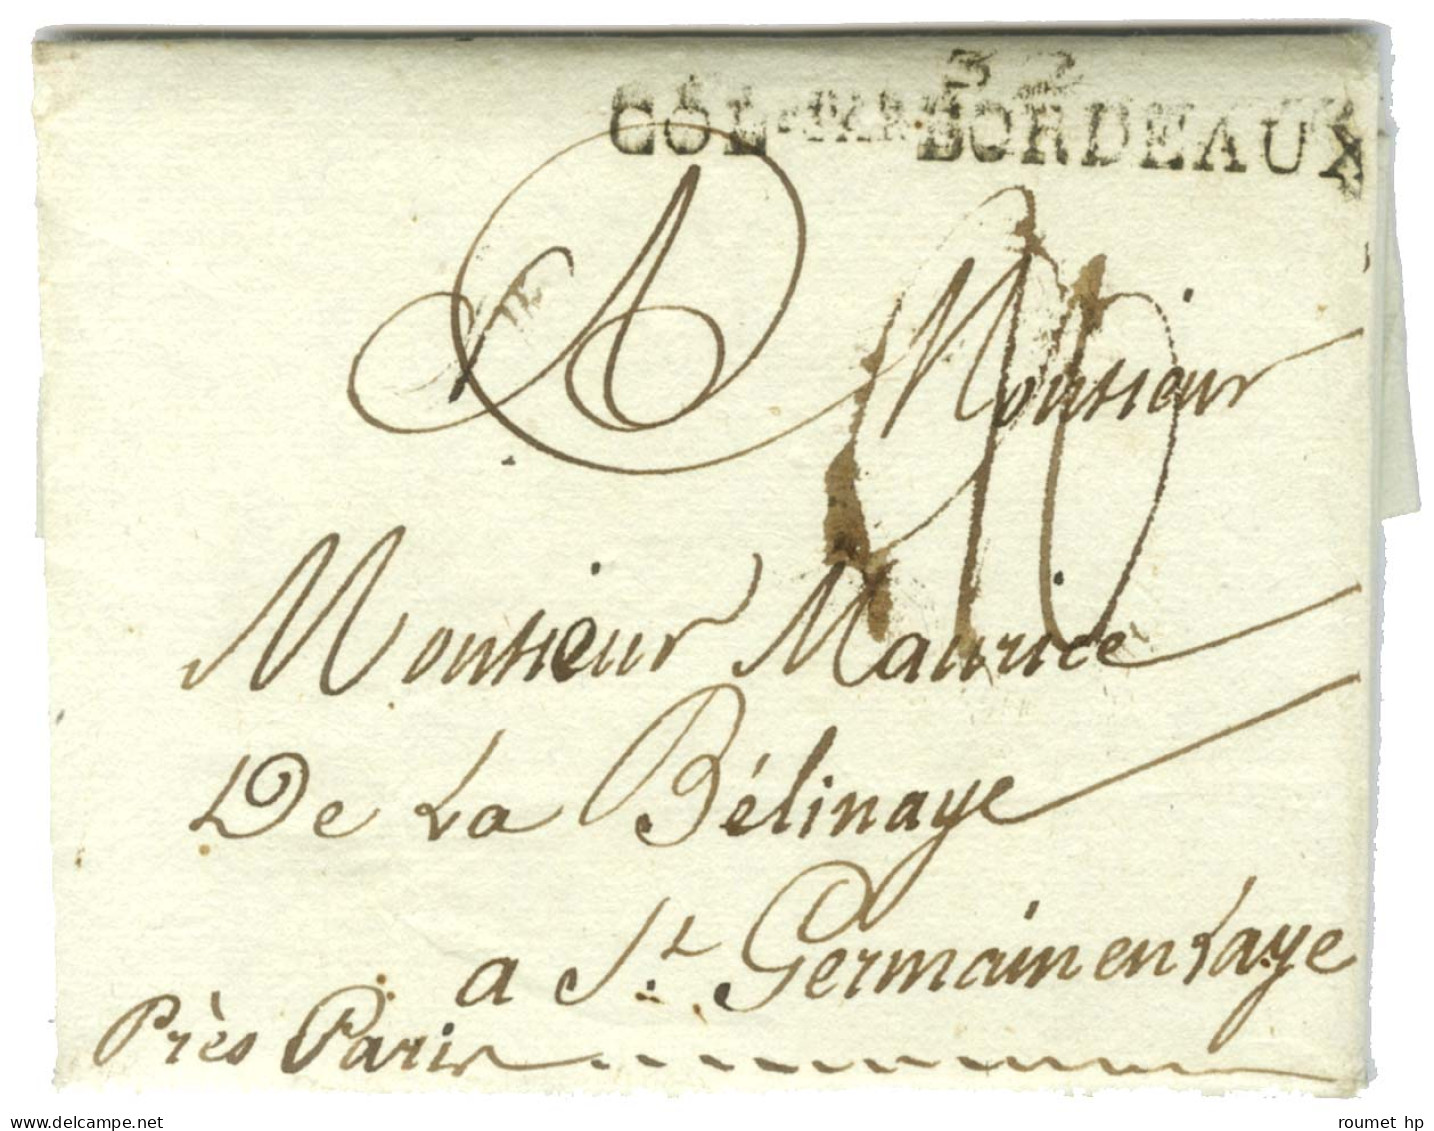 32
COL.PAR BORDEAUX
A Monsieur
Monsieur Maurice
De La Bélinaye
a St. Germain en Laye
Près Paris
delcampe.net
roumet hp